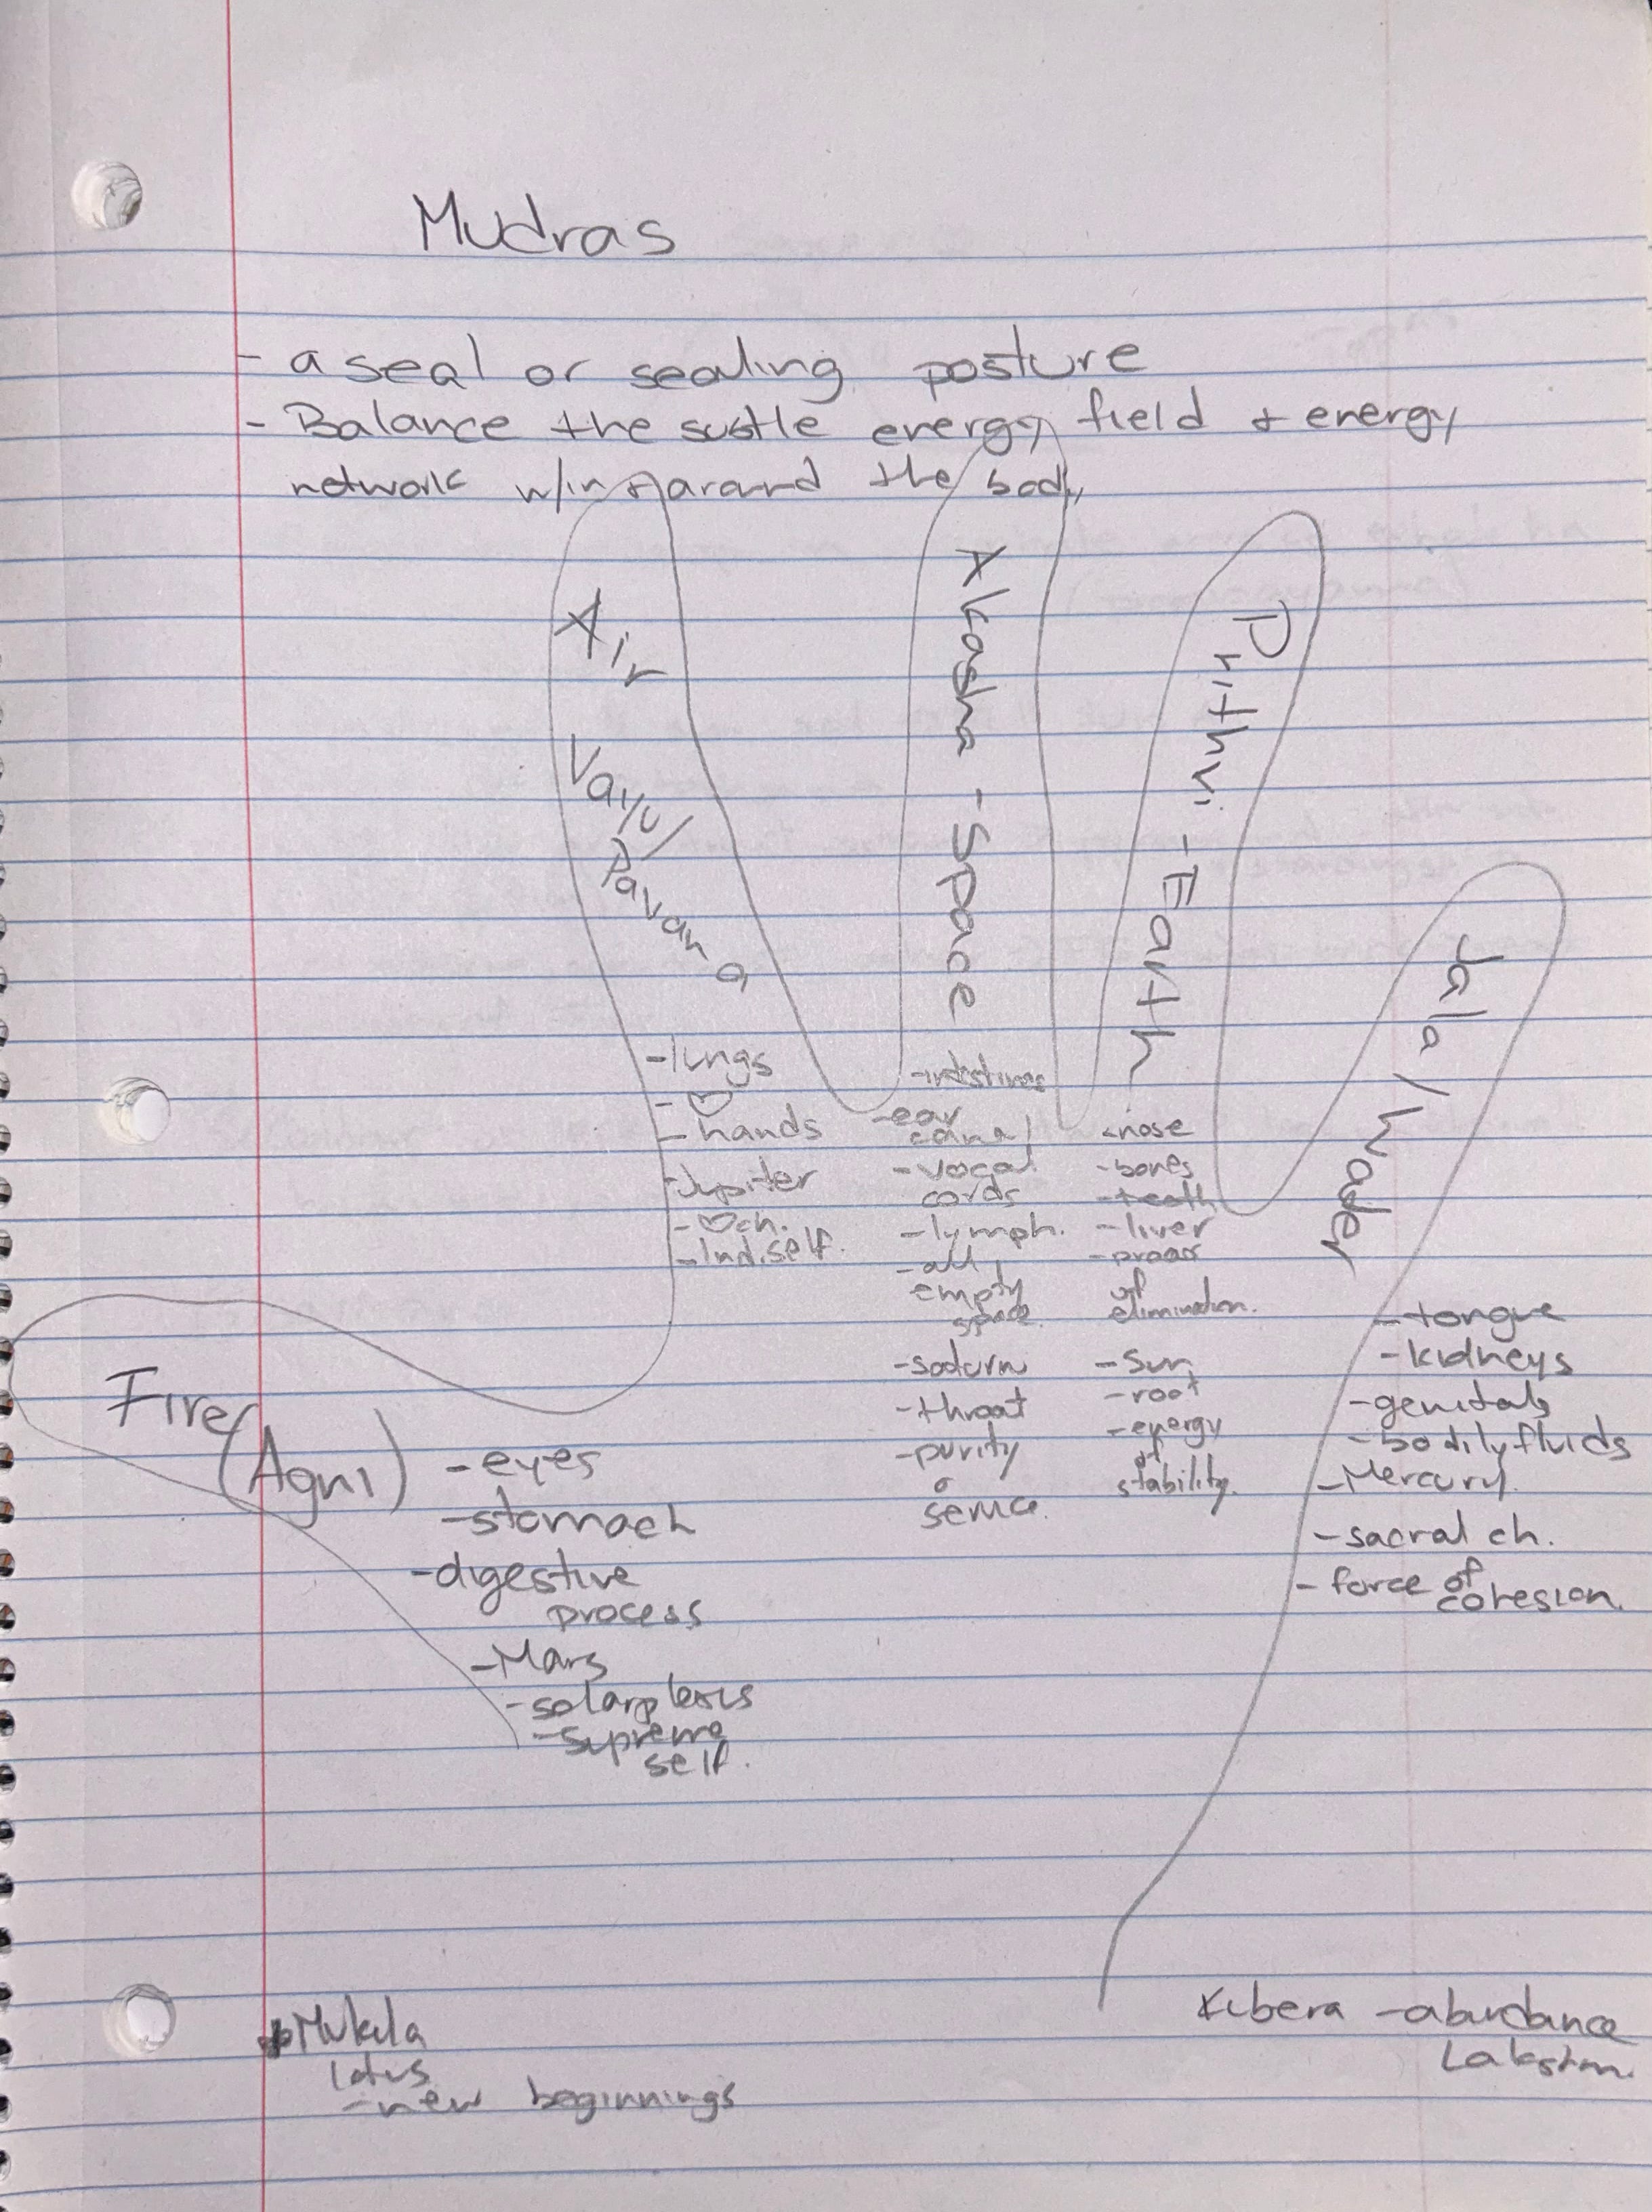 Mudras
- a seal or sealing posture
- Balance the subtle energy field & energy
network w/in & around the body
Air
Vayu/
Pavana
Akasha - Space
Prithvi - Earth
Jala / Water
Fire
(Agni)
- lungs
- ♡
- hands
- Jupiter
- ♡ ch.
- Ind. self.
- intestines
- ear
canal
- vocal
cords
- lymph.
- all
empty
space.
- saturn
- throat
- purity
o
- nose
- bones
- teeth
- liver
of
elimination.
- Sun
- root
- energy
of
stability.
- tongue
- kidneys
- genitals
- bodily fluids
- Mercury
- sacral ch.
- force of
cohesion.
- eyes
- stomach
- digestive
process
- Mars
- solar plexus
- Supreme
self.
Mukula
lotus
- new beginnings
Kubera - abundance